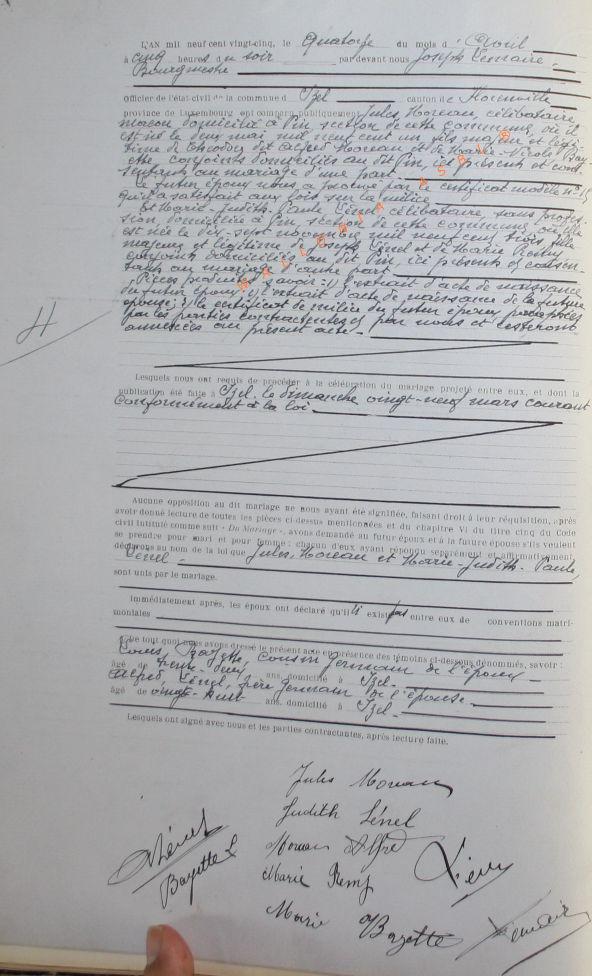 L'AN mil neuf cent vingt-cinq, le Quatorze du mois d' Avril
à cinq heures du soir par devant nous Joseph Lemaire
Bourgmestre
Officier de l'état-civil de la commune d' Izel canton de Florenville
province de Luxembourg ont comparu publiquement Jules Moreau, célibataire,
maçon domicilié à Pin, section de cette commune, où il
est né le deux mai mil neuf cent un fils majeur et légi-
time de Théodore dit Alfred Moreau et de Marie-Nicole Ba-
zette conjoints domiciliés au dit Pin, ici présents et con-
sentants au mariage d'une part.
Le futur époux nous a prouvé par le certificat modèle n°
qu'il a satisfait aux lois sur la milice
Et Marie-Judith-Paule Lénel célibataire, sans profes-
sion, domiciliée à Pin section de cette commune, où elle
est née le dix-sept novembre mil neuf cent trois, fille
majeure et légitime de Joseph Lénel et de Marie Remy
conjoints domiciliés au dit Pin, ici présents et consen-
tants au mariage d'autre part
Pièces produites, savoir: 1) l'extrait d'acte de naissance
du futur époux; 2) l'extrait d'acte de naissance de la future
épouse; 3) le certificat de milice du futur époux
par les parties contractantes et par nous et resteront
annexées au présent acte.
Lesquels nous ont requis de procéder à la célébration du mariage projeté entre eux, et dont la
publication été faite à Izel, le dimanche vingt-neuf mars courant
conformément à la loi
Aucune opposition au dit mariage ne nous ayant été signifiée, faisant droit à leur réquisition, après
avoir donné lecture de toutes les pièces ci-dessus mentionnées et du chapitre VI du titre cinq du Code
civil intitulé comme suit « Du Mariage », avons demandé au futur époux et à la future épouse s'ils veulent
se prendre pour mari et pour femme; chacun d'eux ayant répondu séparément et affirmativement,
déclarons au nom de la loi que Jules Moreau et Marie-Judith-Paule
Lénel
sont unis par le mariage.
Immédiatement après, les époux ont déclaré qu'il n'existe pas entre eux de conventions matri-
moniales
De tout quoi nous avons dressé le présent acte en présence des témoins ci-dessous dénommés, savoir :
Louis Bazette, cousin germain de l'époux
âgé de trente-deux ans, domicilié à Izel.
Alfred Lénel, frère germain de l'épouse
âgé de vingt-huit ans, domicilié à Izel.
Lesquels ont signé avec nous et les parties contractantes, après lecture faite.
Jules Moreau
Judith Lénel
Moreau Alfred
Marie Remy
Marie Bazette
ALénel
Bazette L
Lénel
Lemaire